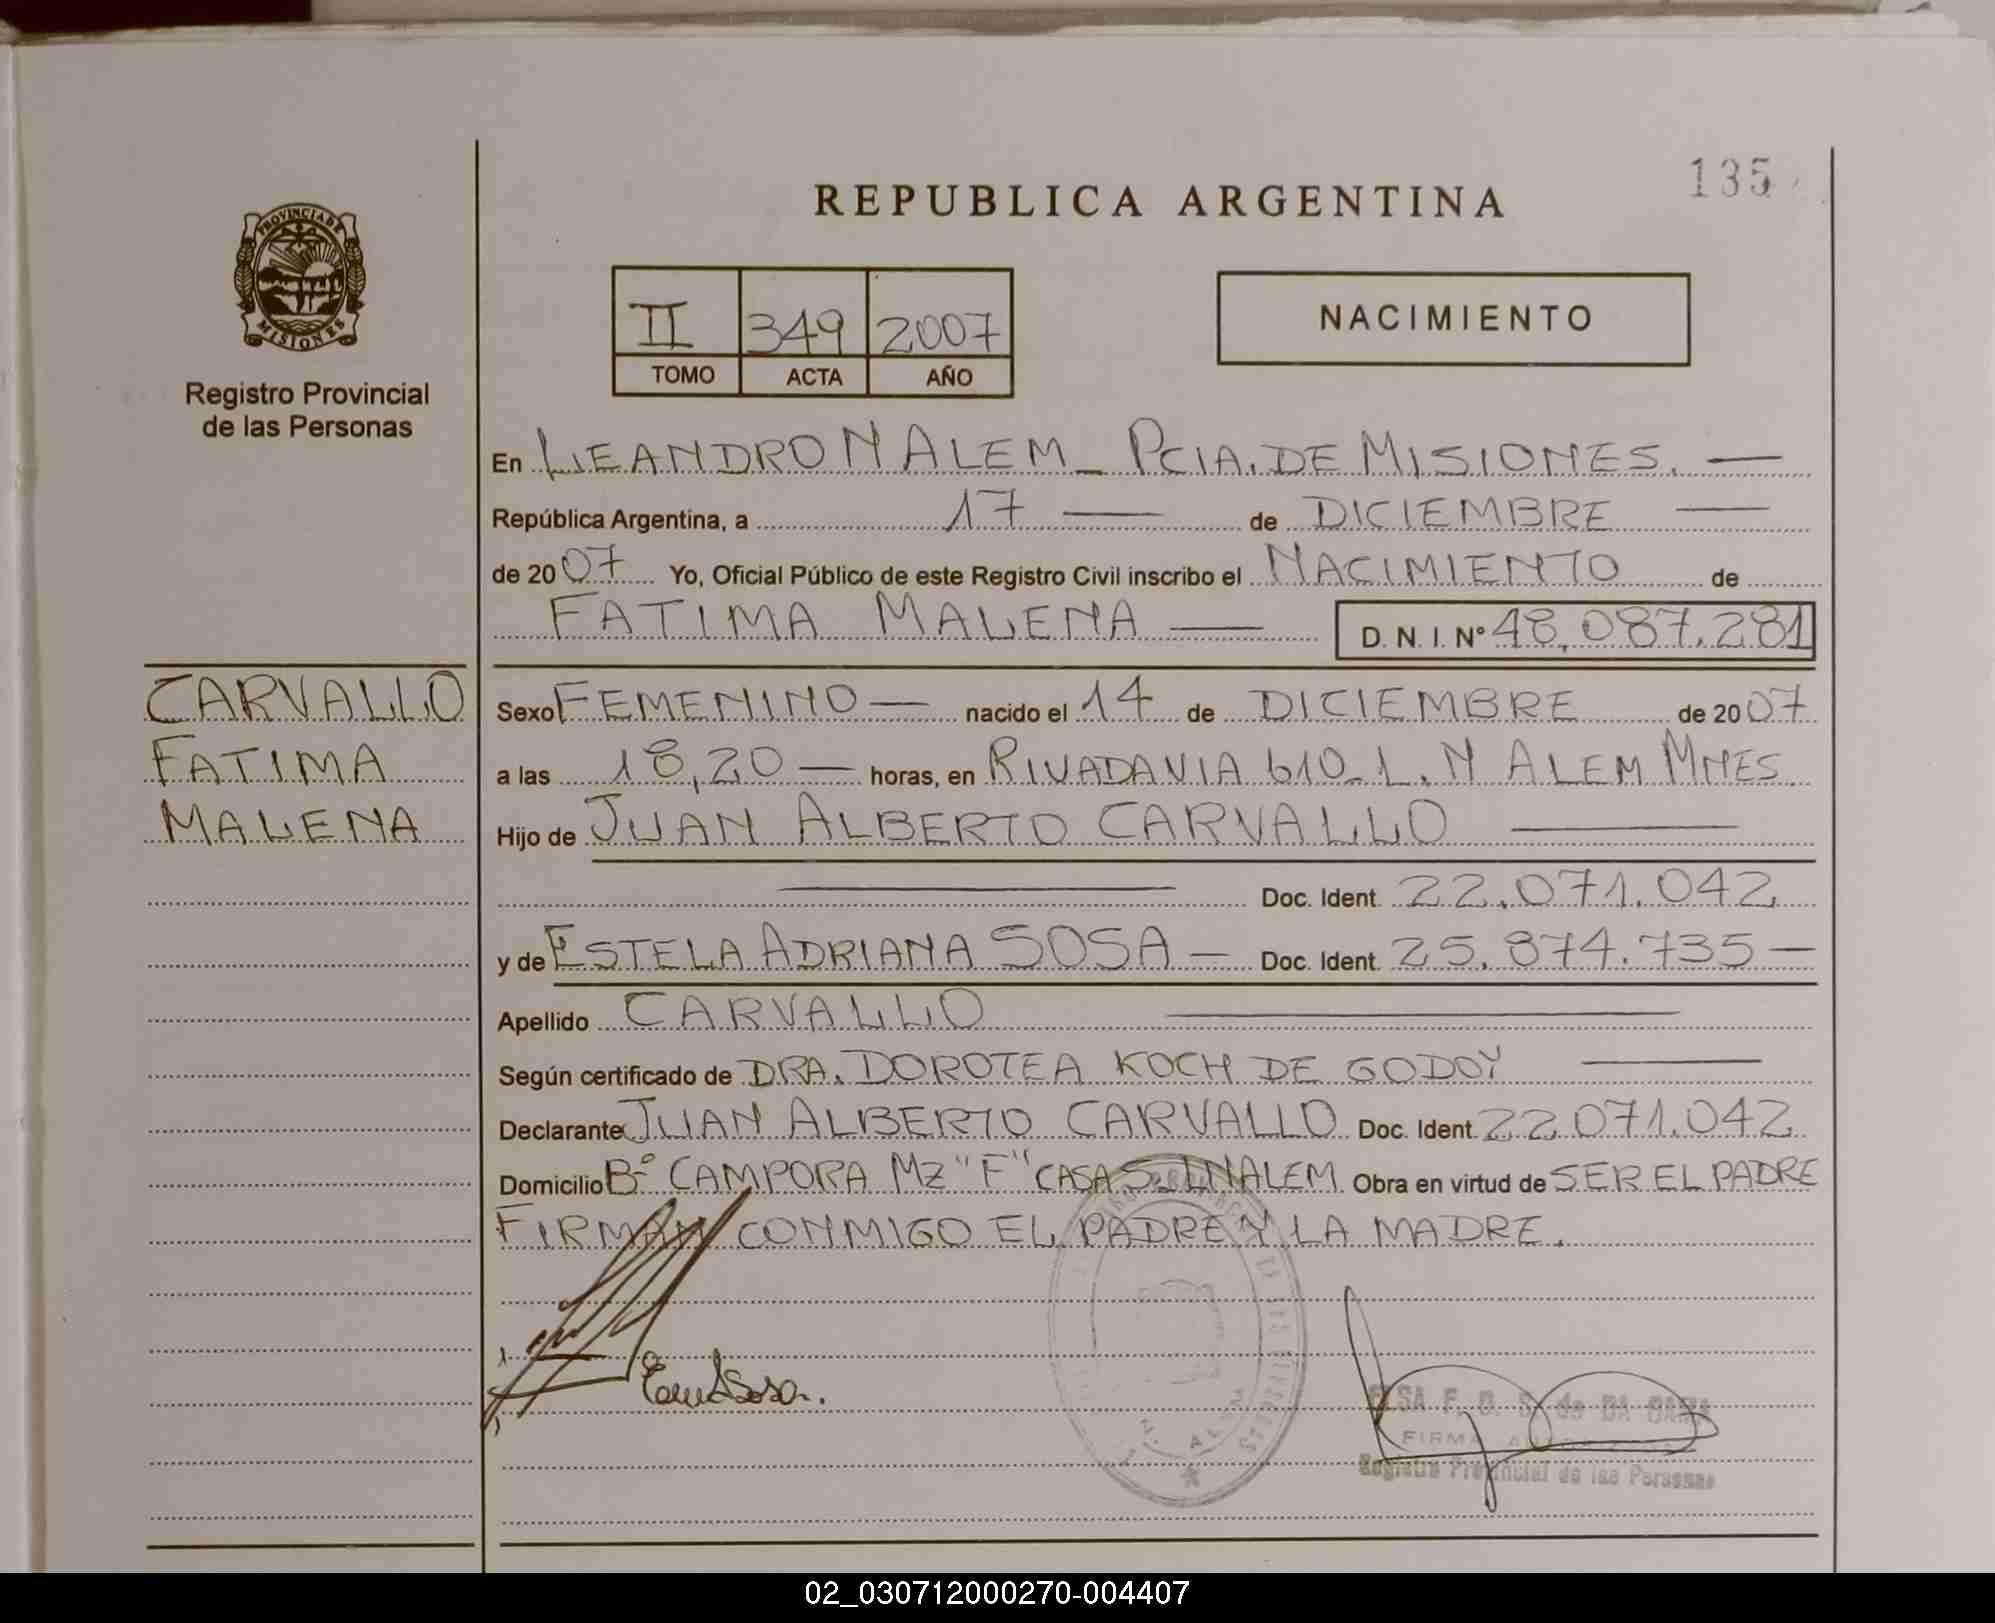 135
REPUBLICA ARGENTINA
PROVINCIA DE
MISIONES
Registro Provincial
de las Personas
II 349 2007
TOMO ACTA AÑO
NACIMIENTO
En LEANDRO N ALEM - PCIA. DE MISIONES. —
República Argentina, a 17 — de DICIEMBRE —
de 2007 Yo, Oficial Público de este Registro Civil inscribo el NACIMIENTO de
FATIMA MALENA — D. N. I. Nº 48.087.281
CARVALLO
FATIMA
MALENA
Sexo FEMENINO — nacido el 14 de DICIEMBRE de 2007
a las 18,20 — horas, en RIVADAVIA 610 - L. N ALEM MNES
Hijo de JUAN ALBERTO CARVALLO —
— Doc. Ident. 22.071.042
y de ESTELA ADRIANA SOSA — Doc. Ident. 25.874.735 —
Apellido CARVALLO —
Según certificado de DRA. DOROTEA KOCH DE GODOY —
Declarante JUAN ALBERTO CARVALLO Doc. Ident. 22.071.042
Domicilio Bº CAMPORA MZ "F" CASA 5. LNALEM Obra en virtud de SER EL PADRE
FIRMAN CONMIGO EL PADRE Y LA MADRE.
Sosa.
L. N. ALEM
ELSA F. D. S. de DA
FIRMA AUTORIZADA
Registro Provincial de las Personas
02_030712000270-004407